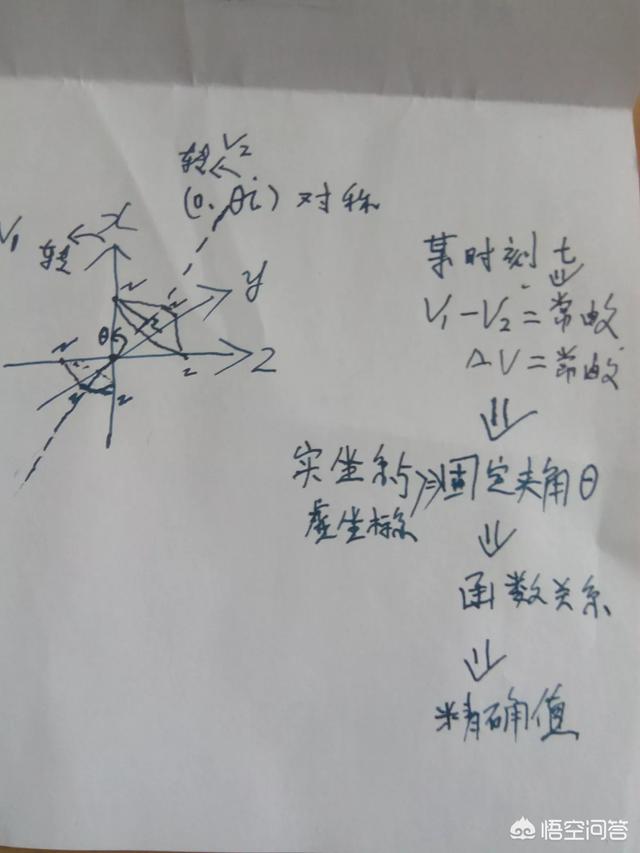 转 V₂
(0, θi) 对称
V₁
转
x
y
θ
z
某时刻 t
V₁-V₂=常数
ΔV=常数
实坐标与
虚坐标
⇒固定夹角θ
函数关系
精确值
悟空问答